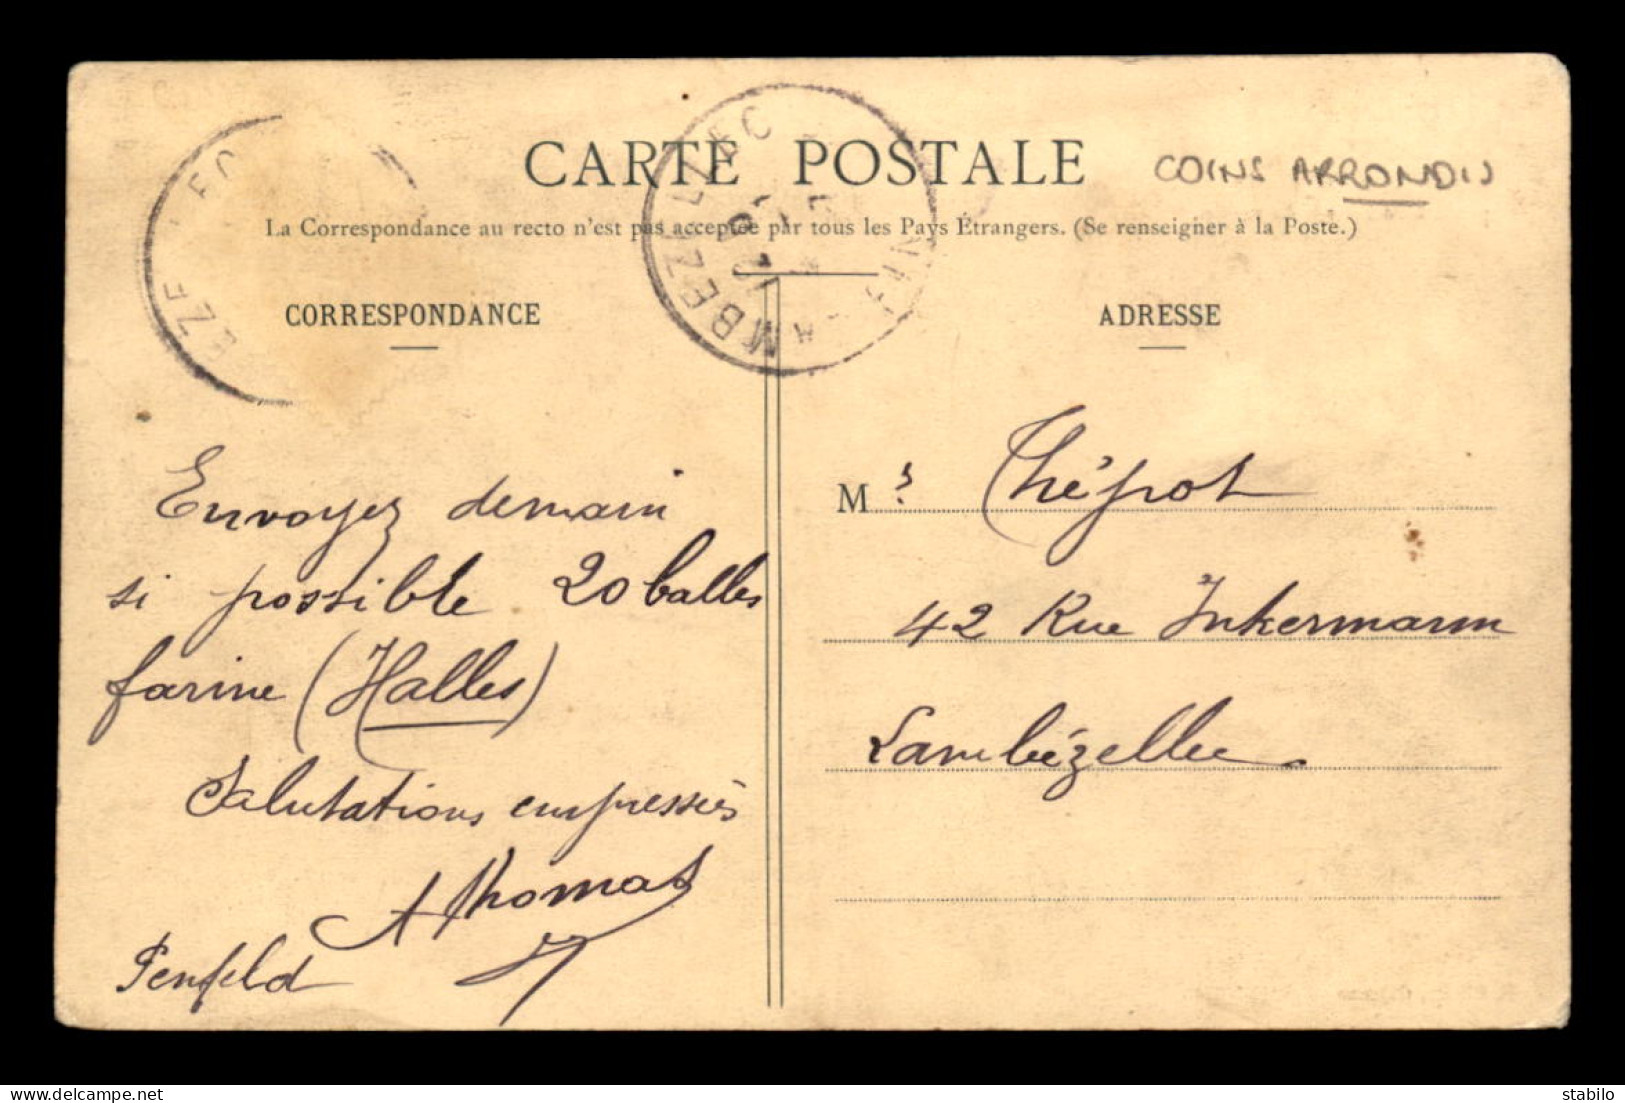 CARTE POSTALE
COINS ARRONDIS
La Correspondance au recto n'est pas acceptée par tous les Pays Étrangers. (Se renseigner à la Poste.)
CORRESPONDANCE
Envoyez demain
si possible 20 balles
farine (Halles)
Salutations empressées
A Thomas
Penfeld
ADRESSE
Mr Thépot
42 Rue Inkermann
Lambézellec
LAMBEZELLEC
stabilo